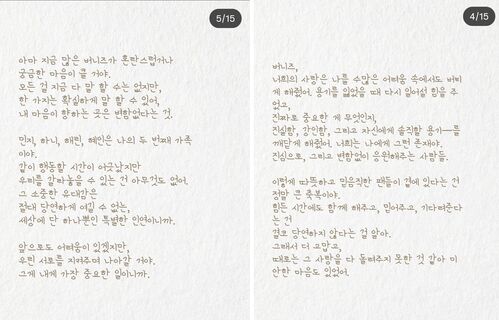 5/15
아마 지금 많은 버니즈가 혼란스럽거나
궁금한 마음이 클 거야.
모든 걸 지금 다 말 할 수는 없지만,
한 가지는 확실하게 말 할 수 있어,
내 마음이 향하는 곳은 변함없다는 것.
민지, 하니, 해린, 혜인은 나의 두 번째 가족
이야.
같이 행동할 시간이 어긋났지만
우리를 갈라놓을 수 있는 건 아무것도 없어.
그 소중한 유대감은
절대 당연하게 여길 수 없는,
세상에 단 하나뿐인 특별한 인연이니까.
앞으로도 어려움이 있겠지만,
우린 서로를 지켜주며 나아갈 거야.
그게 내게 가장 중요한 일이니까.
4/15
버니즈,
너희의 사랑은 나를 수많은 어려움 속에서도 버티
게 해줬어. 용기를 잃었을 때 다시 일어설 힘을 주
었고,
진짜로 중요한 게 무엇인지,
진실함, 강인함, 그리고 자신에게 솔직할 용기—를
깨닫게 해줬어. 너희는 나에게 그런 존재야.
진심으로, 그리고 변함없이 응원해주는 사람들.
이렇게 따뜻하고 믿음직한 팬들이 곁에 있다는 건
정말 큰 축복이야.
힘든 시간에도 함께 해주고, 믿어주고, 기다려준다
는 건
결코 당연하지 않다는 걸 알아.
그래서 더 고맙고,
때로는 그 사랑을 다 돌려주지 못한 것 같아 미
안한 마음도 있었어.